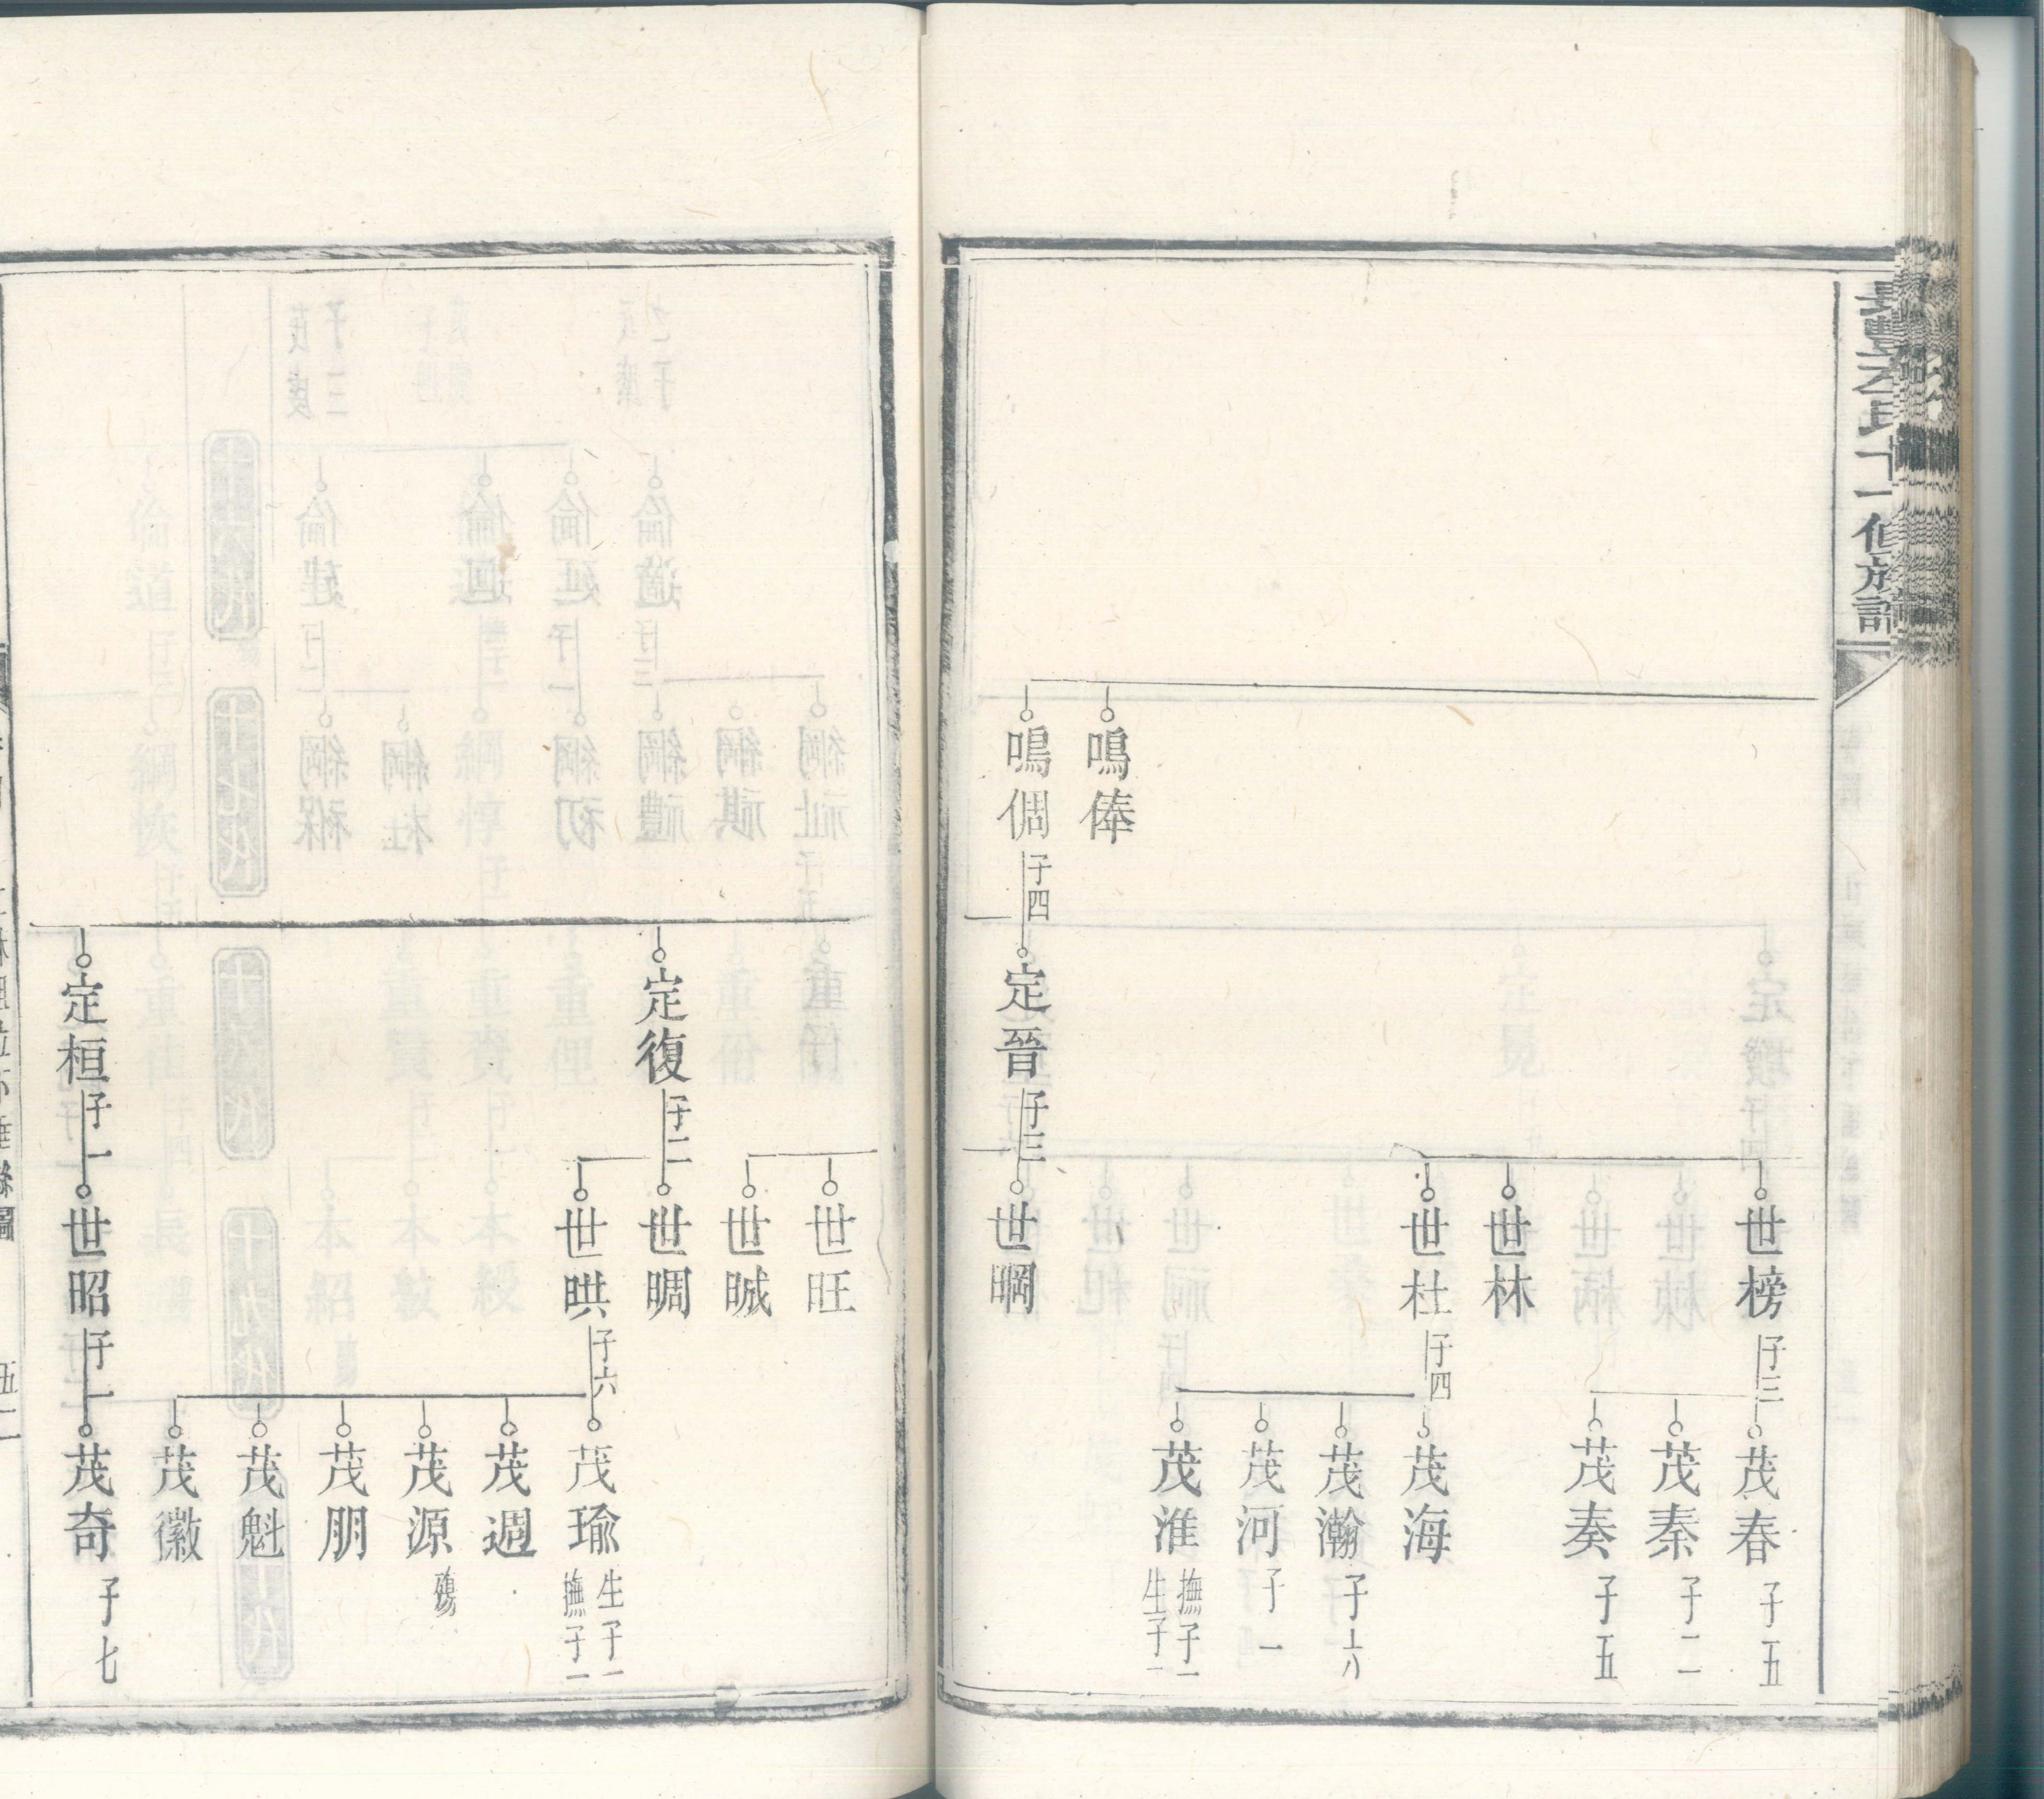 氏十一修族譜
世榜子三
茂春子五
茂秦子二
茂奏子五
世林
世杜子四
茂海
茂瀚子六
茂河子一
茂淮撫子一生子一
鳴俸
鳴倜子四
定晉子三
世㫛
世旺
世晠
定復子二
世晭
世晎子六
茂瑜生子一撫子一
茂週
茂源殤
茂朋
茂魁
茂徽
定桓子一
世昭子一
茂奇子七